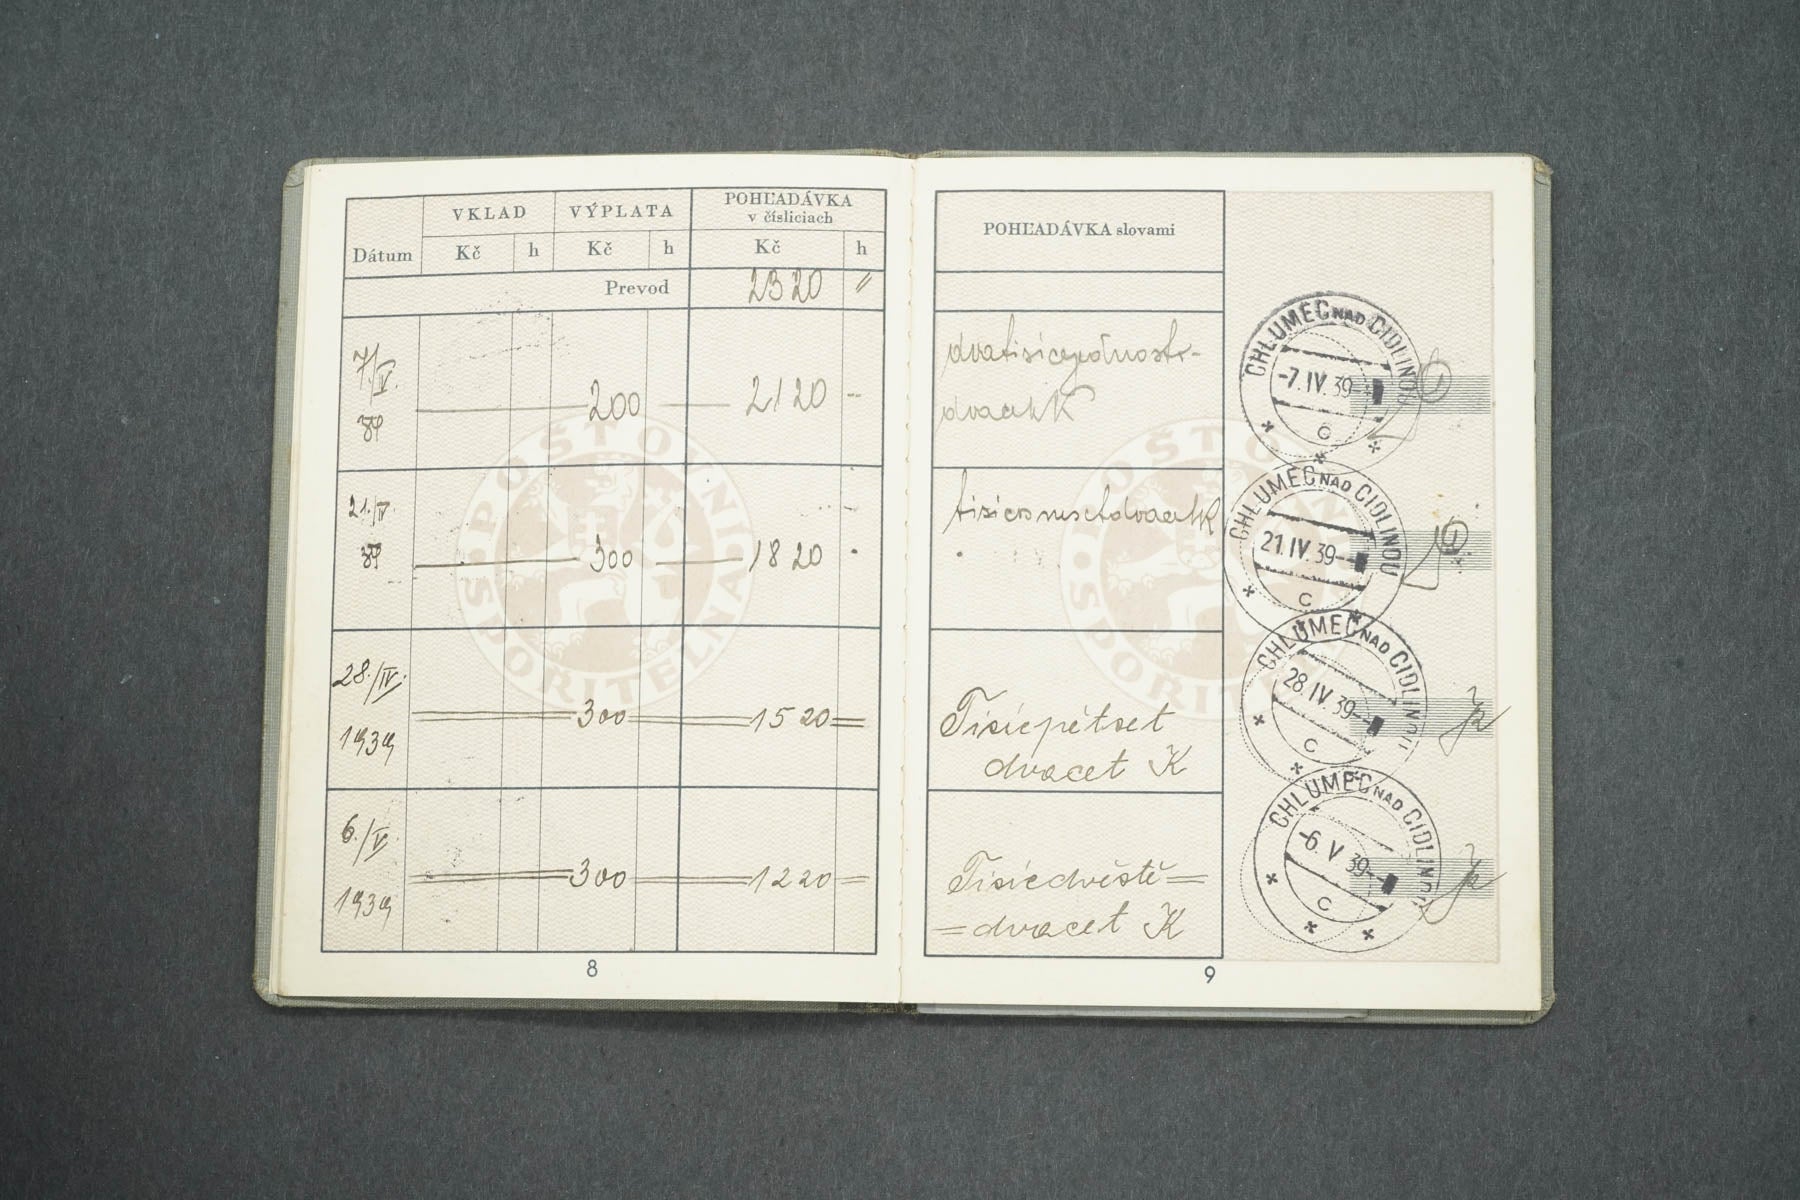 Dátum VKLAD VÝPLATA POHĽADÁVKA
v čísliciach
Kč h Kč h Kč h
Prevod 2320 "
7./IV. 39 200 2120 -
21./IV 39 300 1820 .
28./IV. 1939 300 1520 =
6./V. 1939 300 1220 =
POŠTOVNÍ SPOŘITELNA
8
POHĽADÁVKA slovami
dvacet K
Tisícpětset
dvacet K
Tisícdvěstě =
= dvacet K
9
CHLUMEC NAD CIDLINOU
-7. IV. 39-
C
CHLUMEC NAD CIDLINOU
21. IV. 39-
C
CHLUMEC NAD CIDLINOU
28. IV. 39-
C
CHLUMEC NAD CIDLINOU
-6. V 39-
C